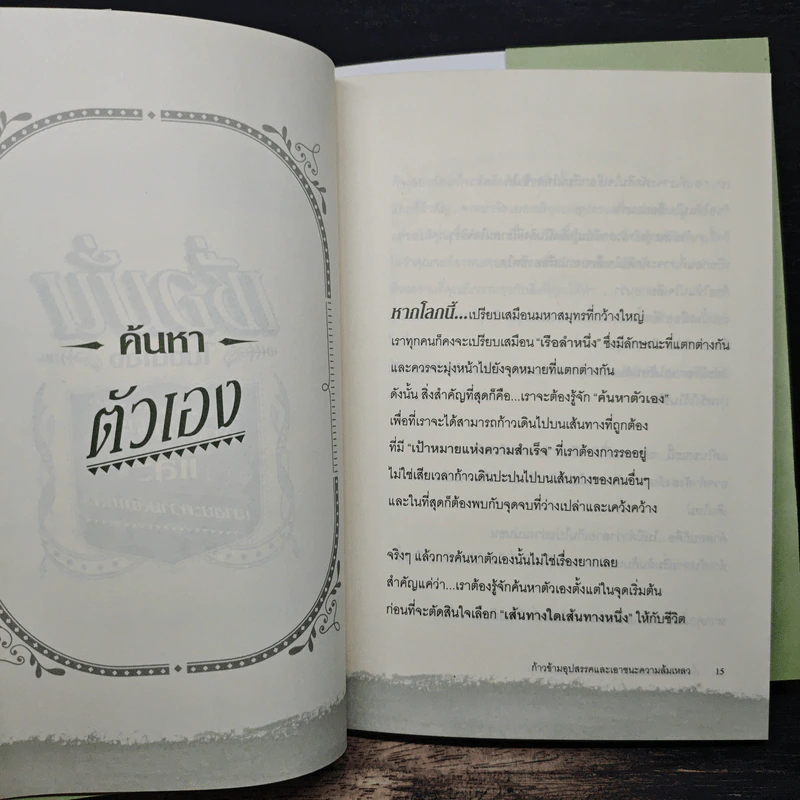 ค้นหา
ตัวเอง
หากโลกนี้...เปรียบเสมือนมหาสมุทรที่กว้างใหญ่
เราทุกคนก็คงจะเปรียบเสมือน “เรือลำหนึ่ง” ซึ่งมีลักษณะที่แตกต่างกัน
และควรจะมุ่งหน้าไปยังจุดหมายที่แตกต่างกัน
ดังนั้น สิ่งสำคัญที่สุดก็คือ...เราจะต้องรู้จัก “ค้นหาตัวเอง”
เพื่อที่เราจะได้สามารถก้าวเดินไปบนเส้นทางที่ถูกต้อง
ที่มี “เป้าหมายแห่งความสำเร็จ” ที่เราต้องการรออยู่
ไม่ใช่เสียเวลาก้าวเดินปะปนไปบนเส้นทางของคนอื่นๆ
และในที่สุดก็ต้องพบกับจุดจบที่ว่างเปล่าและเคว้งคว้าง
จริงๆ แล้วการค้นหาตัวเองนั้นไม่ใช่เรื่องยากเลย
สำคัญแค่ว่า...เราต้องรู้จักค้นหาตัวเองตั้งแต่ในจุดเริ่มต้น
ก่อนที่จะตัดสินใจเลือก “เส้นทางใดเส้นทางหนึ่ง” ให้กับชีวิต
ก้าวข้ามอุปสรรคและเอาชนะความล้มเหลว 15